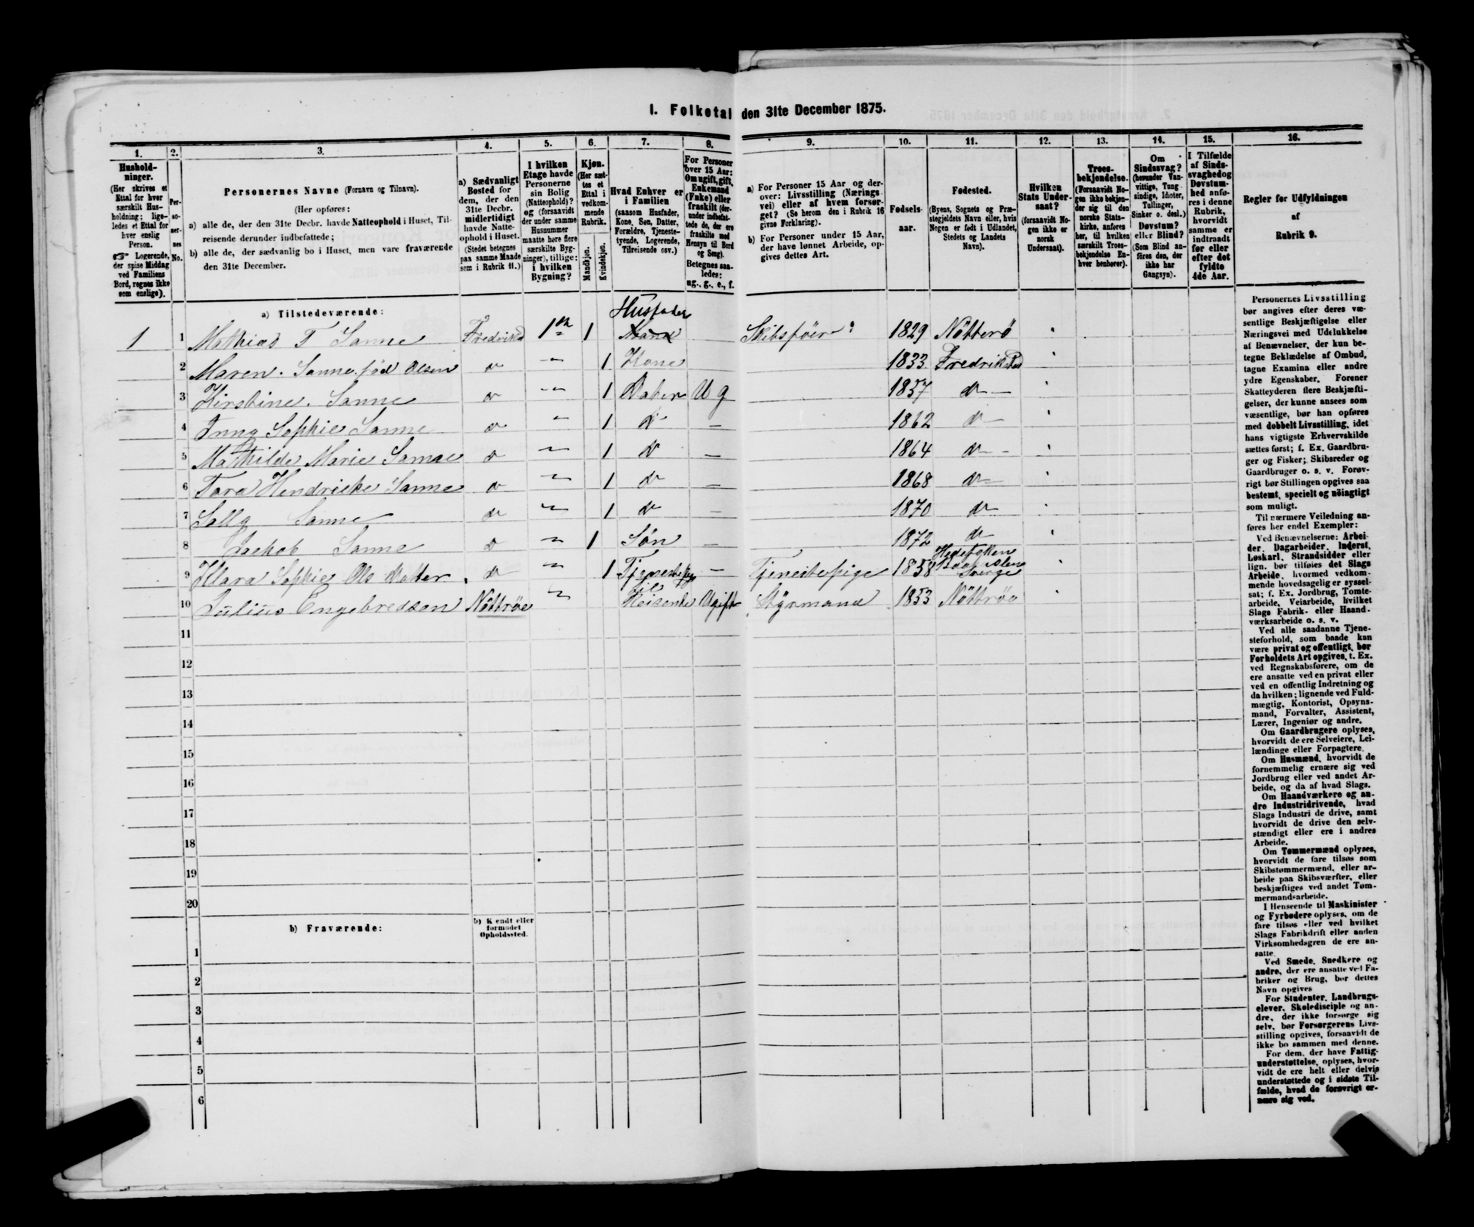 1. Folketal den 31te December 1875.
1. 2. 3. 4. 5. 6. 7. 8. 9. 10. 11. 12. 13. 14. 15. 16.
Hushold-
ninger.
(Her skrives et
Ettal for hver
særskilt Hus-
holdning; lige-
ledes et Ettal for
hver enslig
Person.
☞ Logerende,
der spise Middag
ved Familiens
Bord, regnes ikke
som enslige).
Per-
so-
ner-
nes
No.
Personernes Navne (Fornavn og Tilnavn).
(Her opføres:
a) alle de, der den 31te Decbr. havde Natteophold i Huset, Til-
reisende derunder indbefattede;
b) alle de, der sædvanlig bo i Huset, men vare fraværende
den 31te December.
a) Sædvanligt
Bosted for
dem, der den
31te Decbr.
midlertidigt
havde Natte-
ophold i Huset.
(Stedet betegnes
paa samme Maade
som i Rubrik 11.)
I hvilken
Etage havde
Personerne
sin Bolig
(Natteophold)?
og (forsaavidt
der under samme
Husnummer
maatte høre flere
særskilte Byg-
ninger), tillige:
i hvilken
Bygning?
Kjøn.
(Her sæt-
tes et
Ettal i
vedkom-
mende
Rubrik.
Mandkjøn.
Kvindekjøn.
Hvad Enhver er
i Familien
(saasom Husfader,
Kone, Søn, Datter,
Forældre, Tjeneste-
tyende, Logerende,
Tilreisende osv.)
For Personer
over 15 Aar:
Om ugift, gift,
Enkemand
(Enke) eller
fraskilt (der-
under indbefat-
tede de, der ere
fraskilte med
Hensyn til Bord
og Seng).
Betegnes saa-
ledes:
ug., g., e., f.
a) For Personer 15 Aar og der-
over: Livsstilling (Nærings-
vei) eller af hvem forsør-
get? (Se herom den i Rubrik 16
givne Forklaring).
b) For Personer under 15 Aar,
der have lønnet Arbeide, op-
gives dettes Art.
Fødsels-
aar.
Fødested.
(Byens, Sognets og Præ-
stegjeldets Navn eller, hvis
Nogen er født i Udlandet,
Stedets og Landets
Navn).
Hvilken
Stats Under-
saat?
(forsaavidt No-
gen ikke er
norsk
Undersaat).
Troes-
bekjendelse.
(Forsaavidt No-
gen ikke bekjen-
der sig til den
norske Stats-
kirke, anføres
her, til hvilken
særskilt Troes-
bekjendelse En-
hver henhører).
Om
Sindssvag?
(herunder Van-
vittige, Tung-
sindige, Idioter,
Tullinger,
Sinker o. desl.)
Døvstum?
eller Blind?
(Som Blind an-
føres den, der
ikke har
Gangsyn).
I Tilfælde
af Sinds-
svaghed og
Døvstum-
hed anfø-
res i denne
Rubrik,
hvorvidt
samme er
indtraadt
før eller
efter det
fyldte
4de Aar.
Regler for Udfyldningen
af
Rubrik 9.
a) Tilstedeværende:
1 1 Mathias F Sanne Fredriksd 1ste 1 Husfader Skibsfører 1829 Nøtterø
2 Maren. Sanne. fød Olsen do " 1 Kone 1833. Fredrikstad
3 Kirstine. Sanne do " 1 Dater Ug 1857 do
4 Inna Sophie Sanne do " 1 do — 1862 do
5 Mathilde Marie Sanne do " 1 do 1864 do
6 Tora Hendrieke Sanne do " 1 do — 1868 do
7 Sally Sanne do " 1 do — 1870 do
8 Jackob Sanne do " 1 Søn — 1872 do
9 Klara Sophie Ols Datter do " 1 Tjenestepige — Tjenestepige 1858 Sverge
10 Julius Engebredsen Nøttrøe " Reisende Ugift Styrmand 1853 Nøttrøe
11
12
13
14
15
16
17
18
19
20
b) Fraværende:
b) Kjendt eller
formodet
Opholdssted.
1
2
3
4
5
6
Personernes Livsstilling
bør angives efter deres væ-
sentlige Beskjæftigelse eller
Næringsvei med Udelukkelse
af Benævnelser, der kun be-
tegne Beklædelse af Ombud,
tagne Examina eller andre
ydre Egenskaber. Forener
Skatteyderen flere Beskjæfti-
gelser, der kunne ansees som
væsentlige, bør han opføres
med dobbelt Livsstilling, idet
hans vigtigste Erhvervskilde
sættes først; f. Ex. Gaardbru-
ger og Fisker; Skibsreder og
Gaardbruger o. s. v. Forøv-
rigt bør Stillingen opgives saa
bestemt, specielt og nøiagtigt
som muligt.
Til nærmere Veiledning an-
føres her endel Exempler:
Ved Benævnelserne: Arbei-
der, Dagarbeider, Inderst,
Løskarl, Strandsidder eller
lign. bør tilføies det Slags
Arbeide, hvormed vedkom-
mende hovedsagelig er syssel-
sat; f. Ex. Jordbrug, Tomte-
arbeide, Veiarbeide, hvilket
Slags Fabrik- eller Haand-
værksarbeide o. s. v.
Ved alle saadanne Tjene-
steforhold, som baade kan
være privat og offentligt, bør
Forholdets Art opgives, t. Ex.
ved Regnskabsførere, om de
ere ansatte ved en privat eller
ved en offentlig Indretning og
da hvilken; lignende ved Fuld-
mægtig, Kontorist, Opsyns-
mand, Forvalter, Assistent,
Lærer, Ingeniør og andre.
Om Gaardbrugere oplyses,
hvorvidt de ere Selveiere, Lei-
lændinge eller Forpagtere.
Om Husmænd, hvorvidt de
fornemmelig ernære sig ved
Jordbrug eller ved andet Ar-
beide, og da af hvad Slags.
Om Haandværkere og an-
dre Industridrivende, hvad
Slags Industri de drive, samt
hvorvidt de drive den selv-
stændigt eller ere i andres
Arbeide.
Om Tømmermænd oplyses,
hvorvidt de fare tilsøs som
Skibstømmermænd, eller ar-
beide paa Skibsværfter, eller
beskjæftiges ved andet Tøm-
mermandsarbeide.
I Henseende til Maskinister
og Fyrbødere oplyses, om de
fare tilsøs eller ved hvilket
Slags Fabrikdrift eller anden
Virksomhedsgren de ere an-
satte.
Ved Smede, Snedkere og
andre, der ere ansatte ved Fa-
briker og Brug, bør dettes
Navn opgives
For Studenter, Landbrugs-
elever, Skoledisciple og an-
dre, der ikke forsørge sig
selv, bør Forsørgerens Livs-
stilling opgives, forsaavidt de
ikke bo sammen med denne.
For dem, der have Fattig-
understøttelse, oplyses, hvor-
vidt de ere helt eller delvis
understøttede og i sidste Til-
fælde, hvad de forøvrigt er-
nære sig ved.